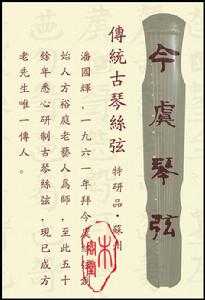 今虞琴弦
傳統古琴絲弦
特研品·蘇州
潘國輝，一九六一年拜今虞絲弦創
始人方裕庭老藝人爲師，至此五十
餘年悉心研制古琴絲弦，現已成方
老先生唯一傳人。